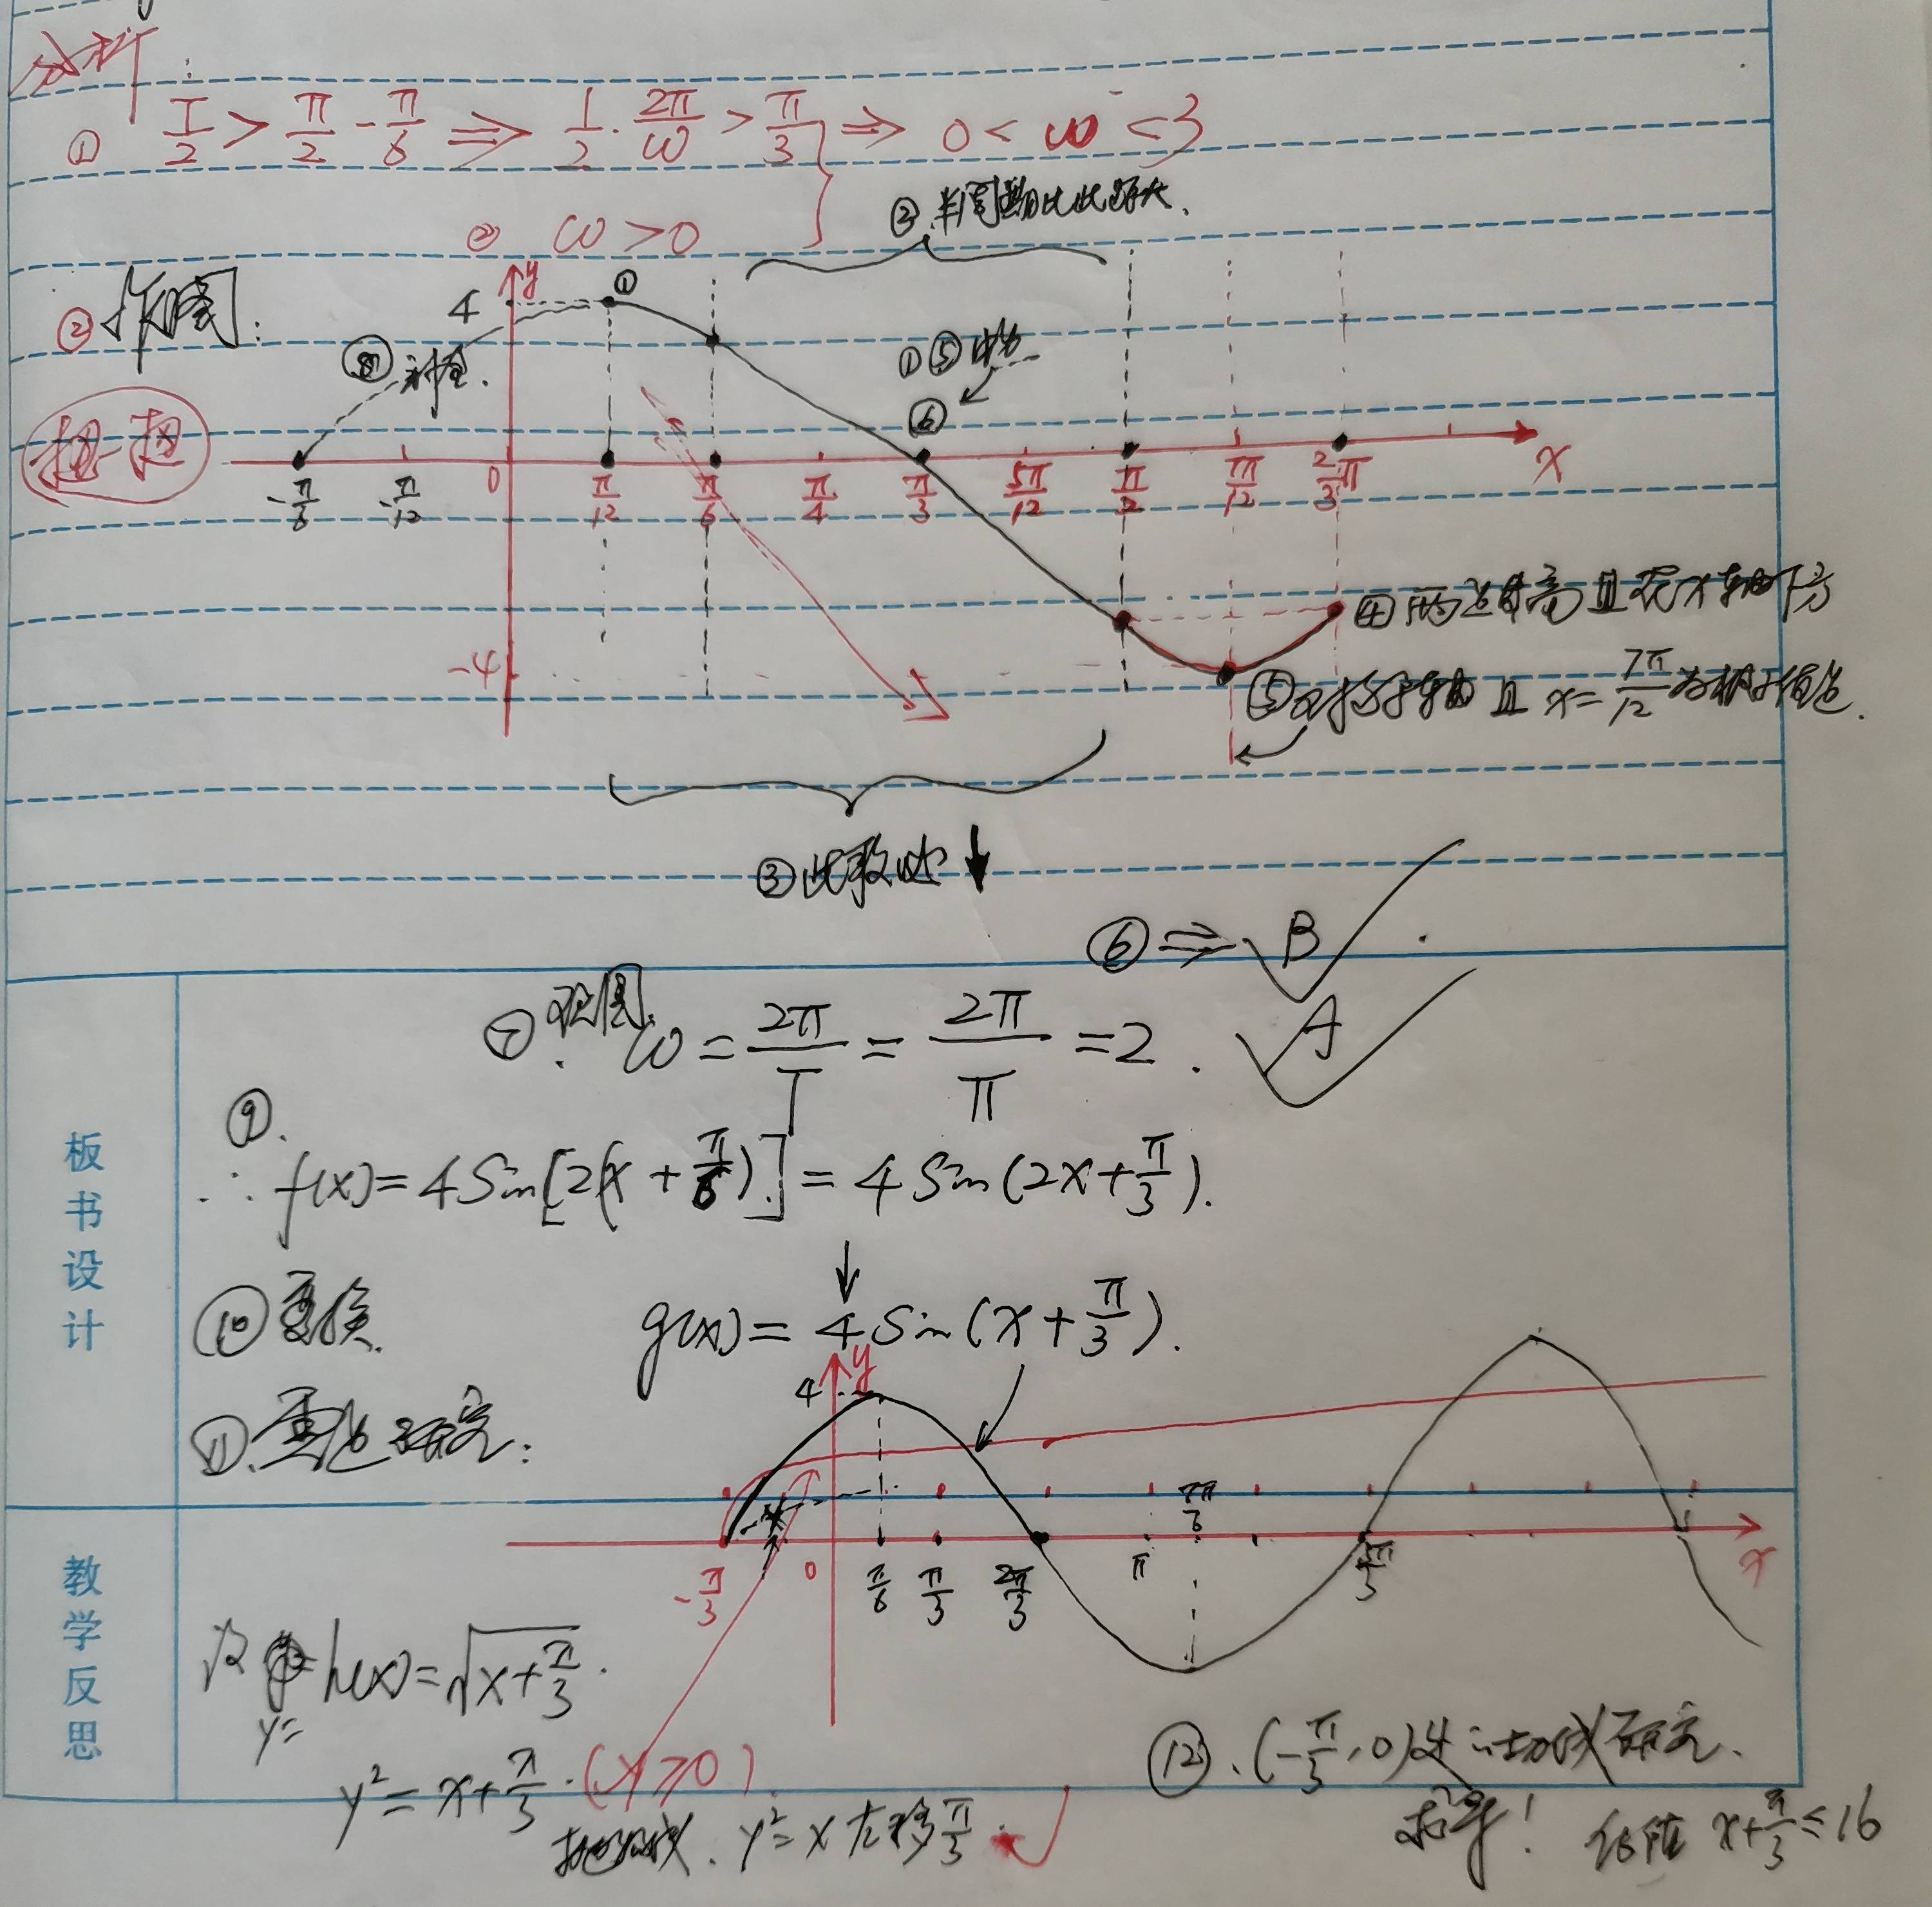 分析:
① T/2 > π/2 - π/6 ⇒ 1/2 · 2π/ω > π/3 } ⇒ 0 < ω < 3
② ω > 0
② 半周期比此距大.
② 作图:
y
4
①
⑧ 补全.
①⑤ 中点
⑥
扭一扭
-π/6 -π/12 0 π/12 π/6 π/4 π/3 5π/12 π/2 7π/12 2/3π x
④ 两点等高且在x轴下方
-4
⑤ 对称轴且 x = 7π/12 为极值点.
③ 此段 ↓
⑥ ⇒ B
⑦ 观图. ω = 2π/T = 2π/π = 2. A
⑨.
∴ f(x) = 4Sin[2(x + π/6)] = 4 Sin(2x + π/3).
板书设计
↓
⑩ 变换. g(x) = 4 Sin(x + π/3).
⑪. 零点研究:
4 y
7π/6
-π/3 0 π/6 π/3 2π/3 π 5π/3 x
教学反思
h(x) = √(x + π/3).
y =
y² = x + π/3. (y ≥ 0)
抛物线. y² = x 左移 π/3.
⑫. (-π/3, 0)处切线研究.
求导! x + π/3 ≤ 16